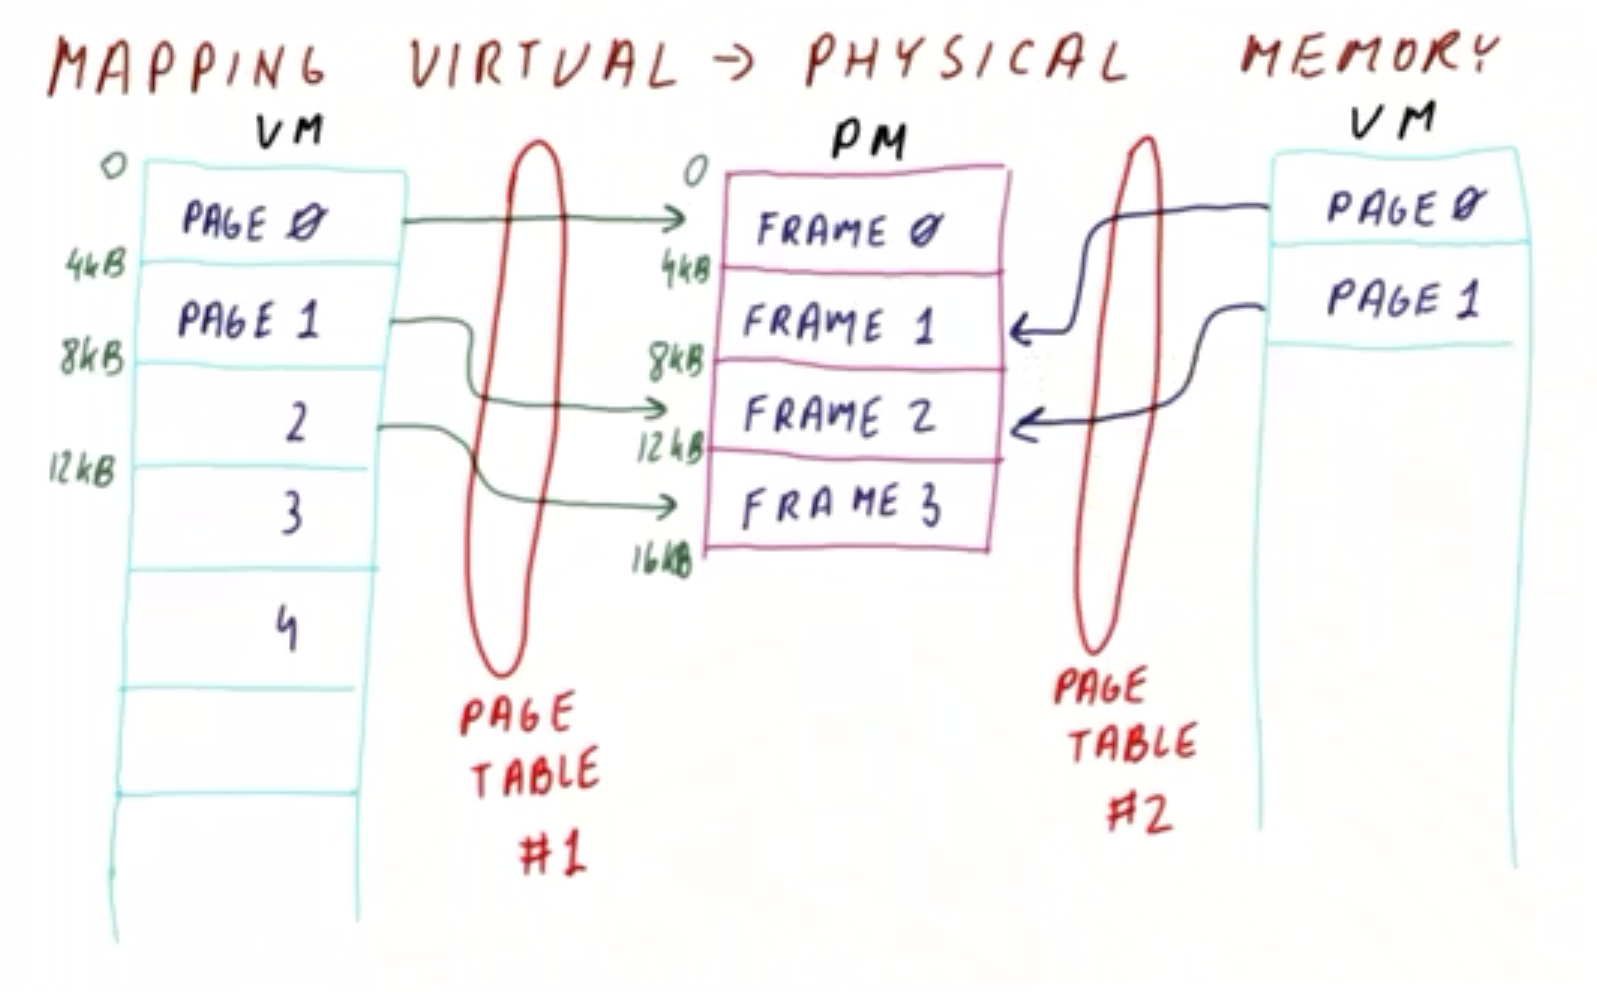 MAPPING VIRTUAL → PHYSICAL MEMORY
VM
0
PAGE 0
4kB
PAGE 1
8kB
2
12kB
3
4
PAGE
TABLE
#1
PM
0
FRAME 0
4kB
FRAME 1
8kB
FRAME 2
12kB
FRAME 3
16kB
PAGE
TABLE
#2
VM
PAGE 0
PAGE 1